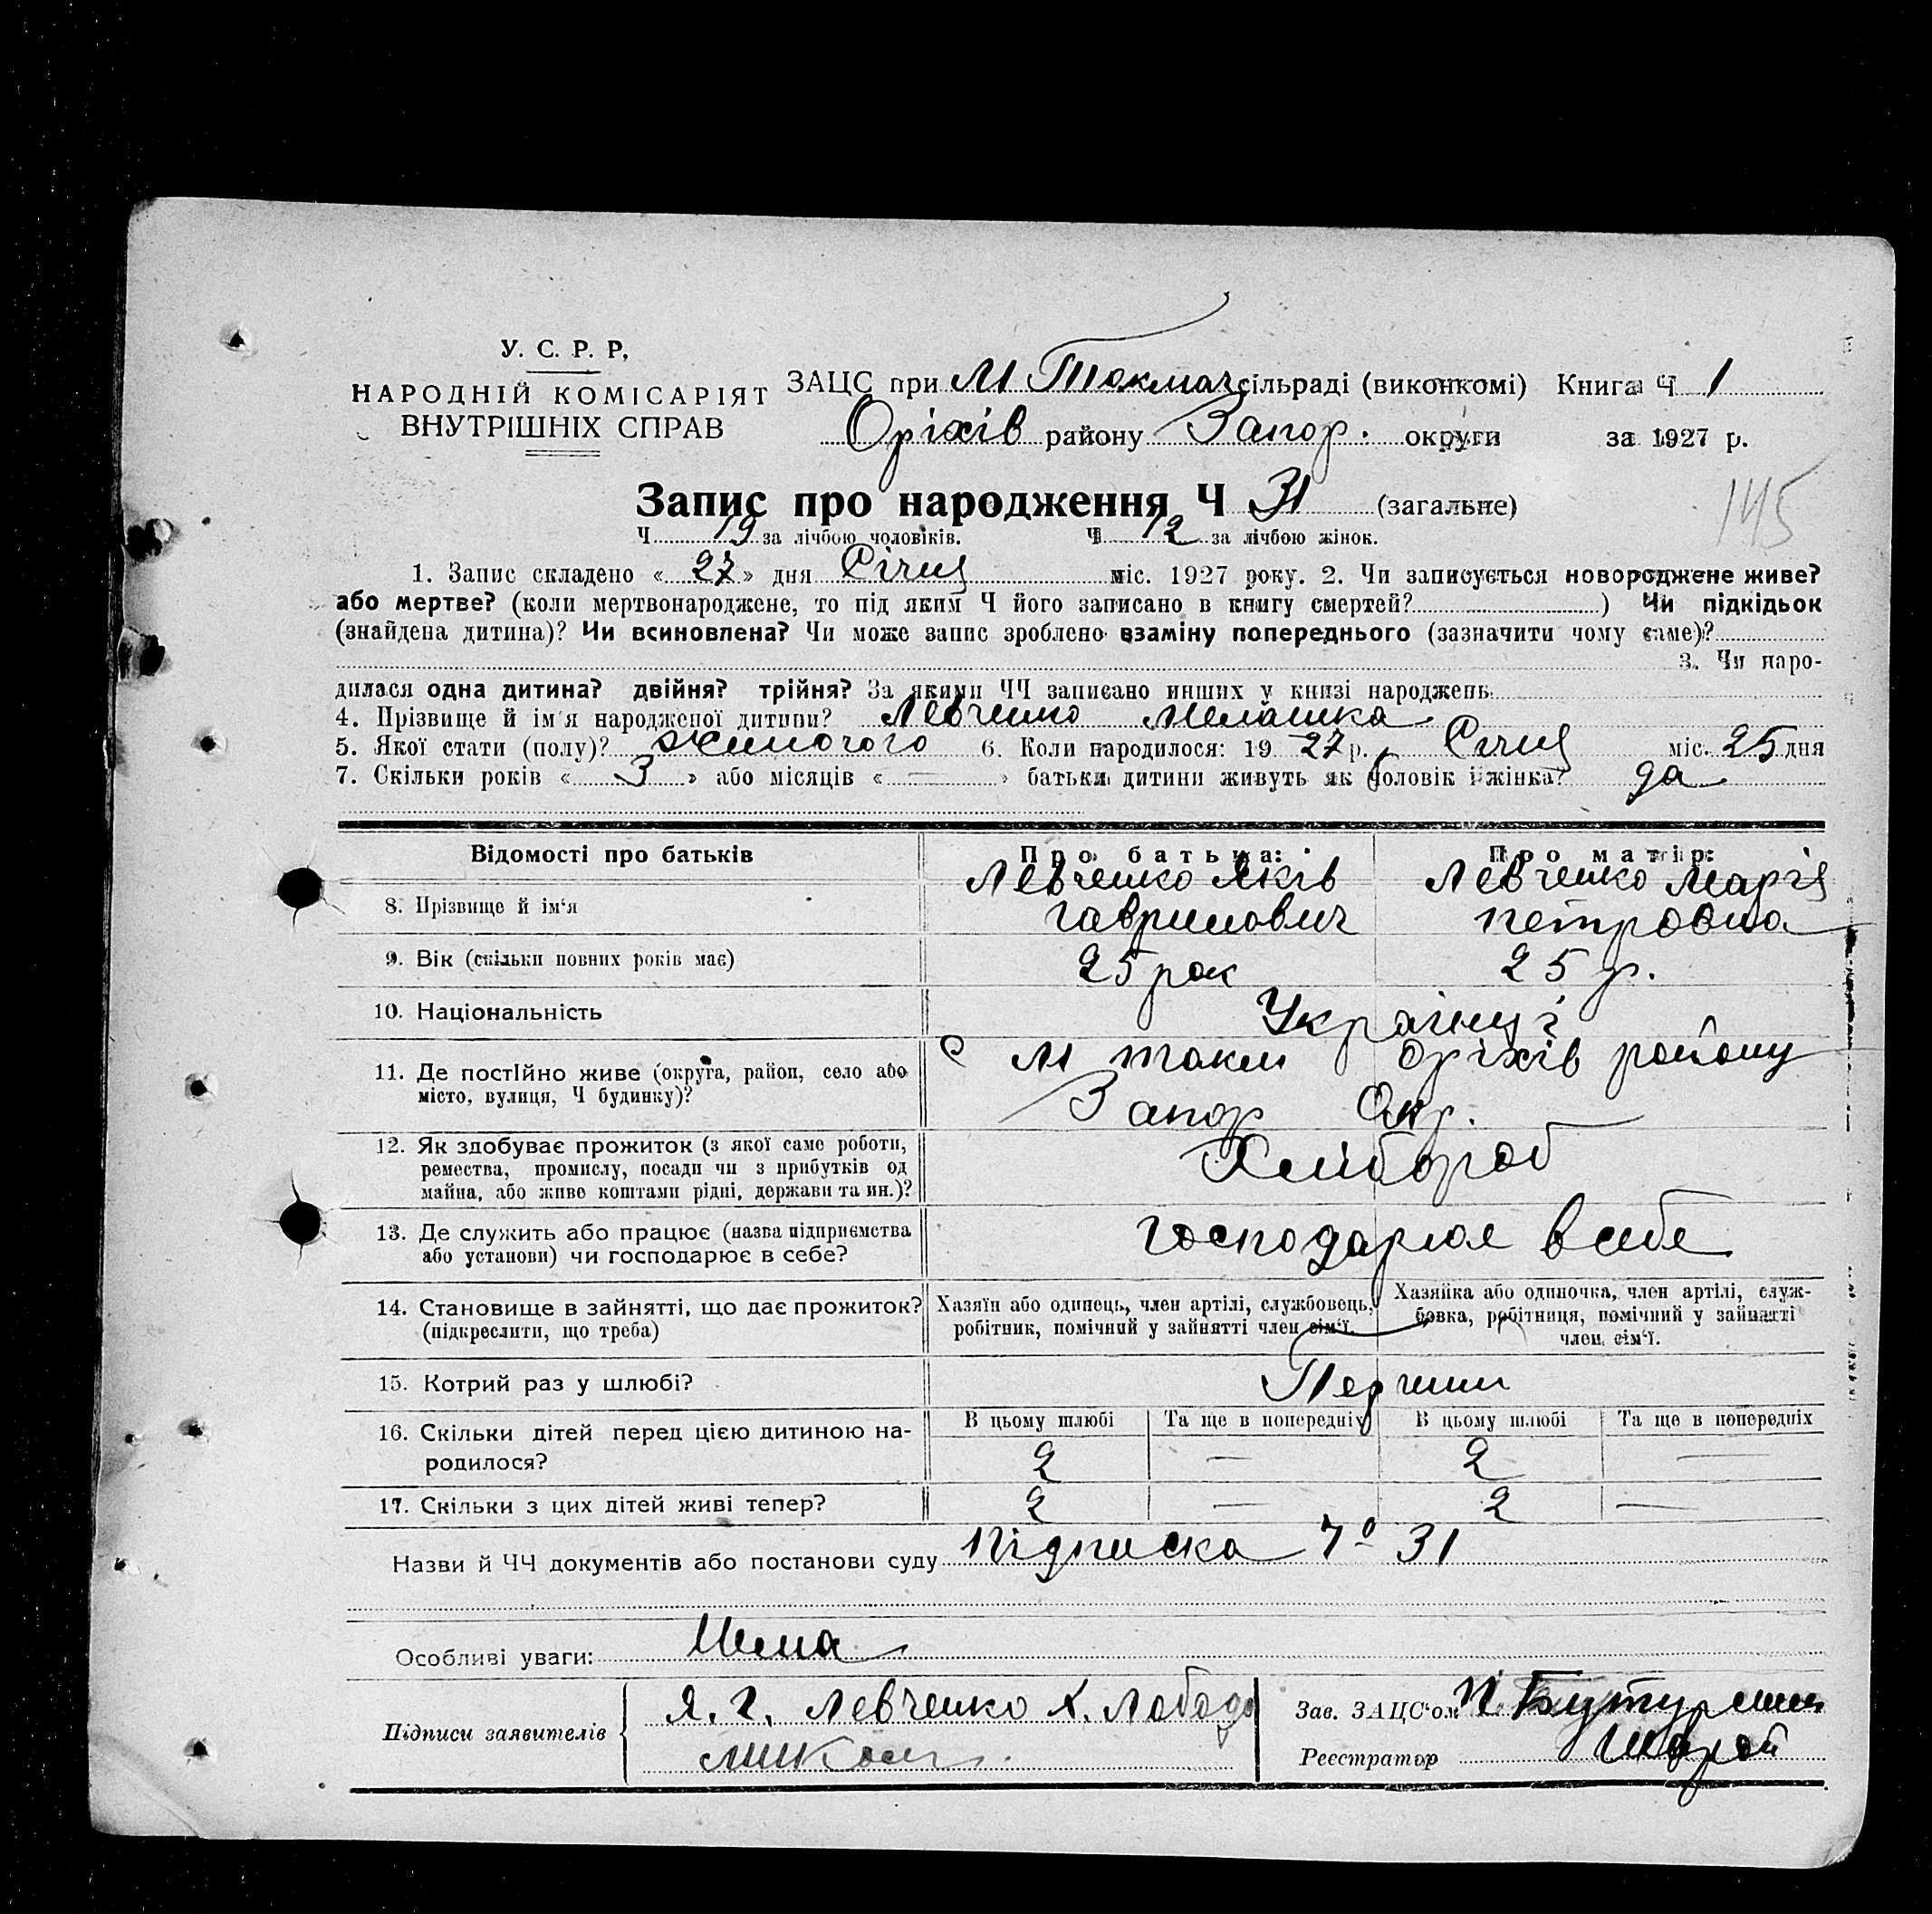 У. С. Р. Р.
НАРОДНІЙ КОМІСАРІЯТ
ВНУТРІШНІХ СПРАВ
ЗАЦС при М Токмач сільраді (виконкомі) Книга Ч 1
Оріхів району Запор. округи за 1927 р.
145
Запис про народження Ч 31 (загальне)
Ч 19 за лічбою чоловіків. Ч 12 за лічбою жінок.
1. Запис складено «27» дня Січня міс. 1927 року. 2. Чи записується новороджене живе?
або мертве? (коли мертвонароджене, то під яким Ч його записано в книгу смертей? ) Чи підкідьок
(знайдена дитина)? Чи всиновлена? Чи може запис зроблено взаміну попереднього (зазначити чому саме)?
3. Чи наро-
дилася одна дитина? двійня? трійня? За якими ЧЧ записано инших у книзі народжень
4. Прізвище й ім'я народженої дитини? Левченко Мелашка
5. Якої стати (полу)? жиночого 6. Коли народилося: 19 27 р. Січня міс. 25 дня
7. Скільки років « 3 » або місяців « — » батьки дитини живуть як чоловік і жінка? да
Відомості про батьків Про батька: Про матір:
8. Прізвище й ім'я Левченко Яків Гаврилович Левченко Марія Петровна
9. Вік (скільки повних років має) 25 рок 25 р.
10. Національність Українці
11. Де постійно живе (округа, район, село або місто, вулиця, Ч будинку)? с М токм Оріхів району
Запор Окр.
12. Як здобуває прожиток (з якої саме роботи, ремества, промислу, посади чи з прибутків од майна, або живе коштами рідні, держави та ин.)? Хлібороб
13. Де служить або працює (назва підприємства або установи) чи господарює в себе? господарює в себе
14. Становище в зайнятті, що дає прожиток? (підкреслити, що треба) Хазяїн або одинець, член артілі, службовець, робітник, помічний у зайнятті член сім'ї. Хазяйка або одиночка, член артілі, служ-бовка, робітниця, помічний у зайнятті член сім'ї.
15. Котрий раз у шлюбі? Перший
16. Скільки дітей перед цією дитиною на-родилося? В цьому шлюбі Та ще в попередніх В цьому шлюбі Та ще в попередніх
2 — 2 —
17. Скільки з цих дітей живі тепер? 2 — 2 —
Назви й ЧЧ документів або постанови суду Підписка 31
Особливі уваги: Нема
Підписи заявителів Я. Г. Левченко Х. Лобода
Зав. ЗАЦС'ом
Реєстратор